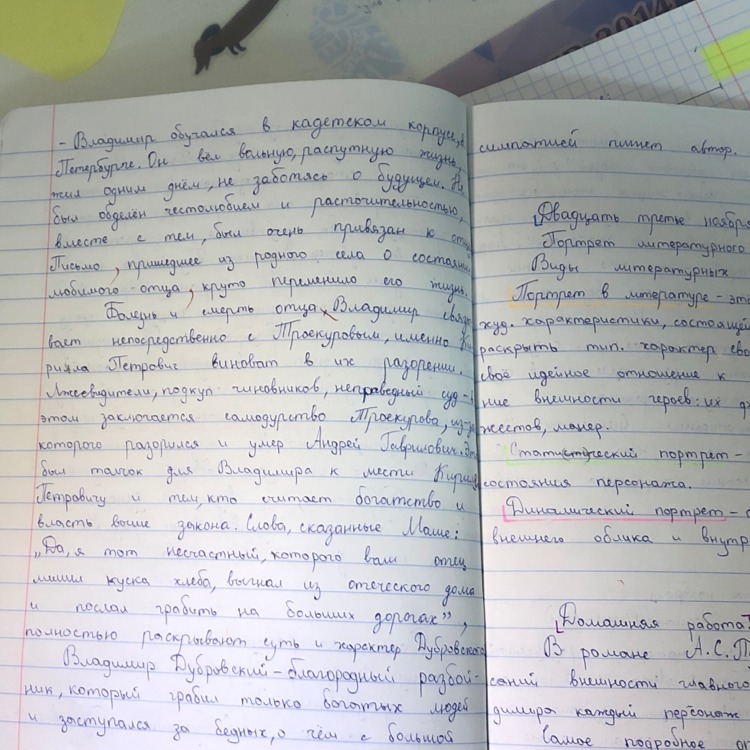 - Владимир обучался в кадетском корпусе, в
Петербурге. Он вёл вольную, распутную жизнь,
жил одним днём, не заботясь о будущем. Не
был обделён честолюбием и расточительностью,
вместе с тем, был очень привязан к отцу.
Письмо, пришедшее из родного села о состоянии
любимого отца, круто переменило его жизнь.
Болезнь и смерть отца Владимир связы-
вает непосредственно с Троекуровым, именно Ки-
рилла Петрович виноват в их разорении.
Лжесвидетели, подкуп чиновников, неправедный суд -
этом заключается самодурство Троекурова, из-за
которого разорился и умер Андрей Гаврилович. Это
был толчок для Владимира к мести Кирилу
Петровичу и тем, кто считает богатство и
власть выше закона. Слова, сказанные Маше:
„Да, я тот несчастный, которого ваш отец
лишил куска хлеба, выгнал из отеческого дома
и послал грабить на больших дорогах”,
полностью раскрывают суть и характер Дубровского.
Владимир Дубровский - благородный разбой-
ник, который грабил только богатых людей
и заступался за бедных, о чём с большой
симпатией пишет автор.
Двадцать третье ноября
Портрет литературного
Виды литературных
Портрет в литературе - это
худ. характеристики, состоящей
раскрыть тип. характер сво
своё идейное отношение к
ние внешности героев: их
жестов, манер.
Статический портрет -
состояния персонажа.
Динамический портрет -
внешнего облика и внутр
Домашняя работа
В романе А.С.П
саний внешности главного
димира каждый персонаж
Самое подробное оп
2014